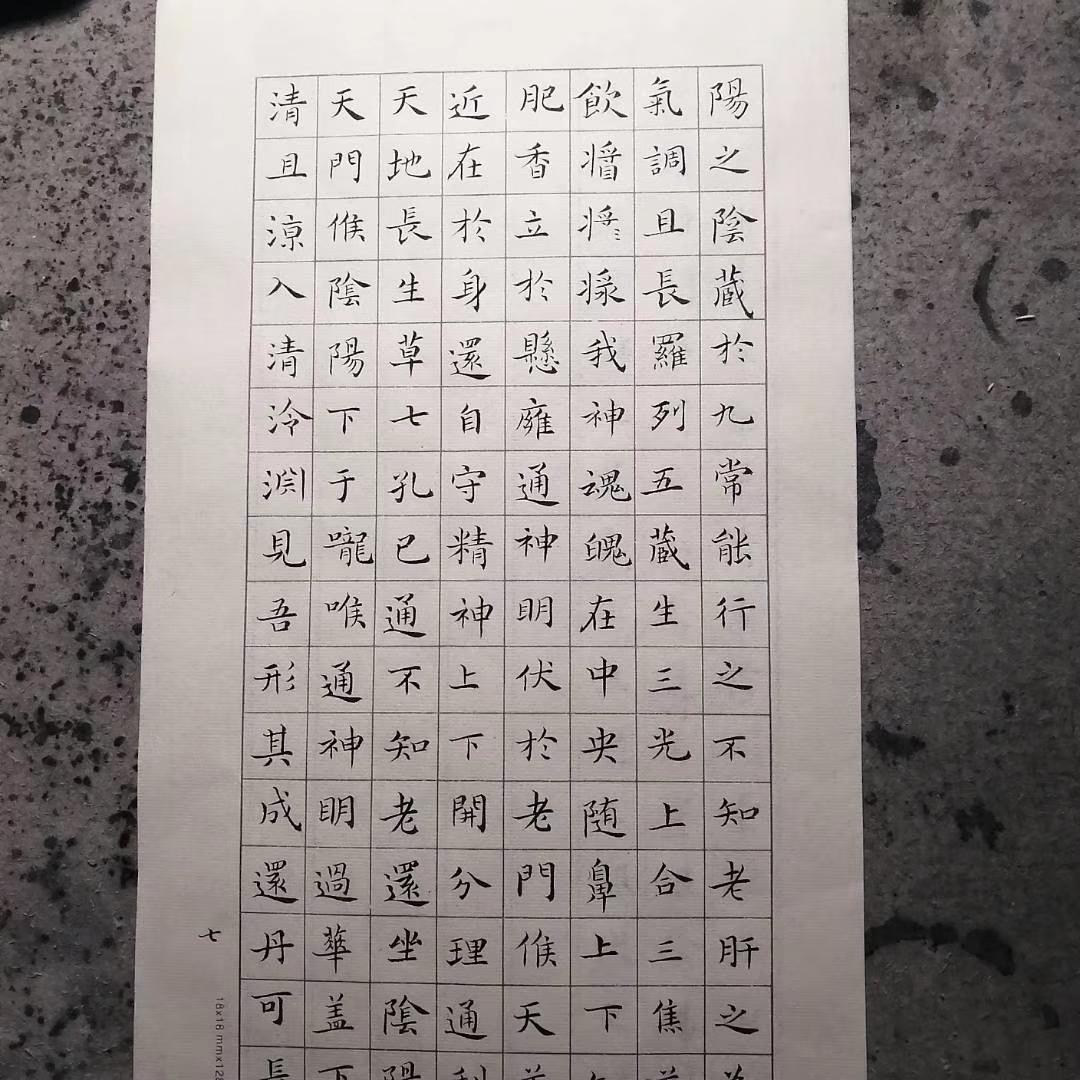 陽之陰蔵於九常能行之不知老肝之
氣調且長羅列五蔵生三光上合三焦
飲醬將漿我神魂魄在中央随鼻上下
肥香立於懸廱通神明伏於老門候天
近在於身還自守精神上下開分理通利
天地長生草七孔已通不知老還坐陰陽
天門候陰陽下于嚨喉通神明過華盖下
清且涼入清泠淵見吾形其成還丹可長
七